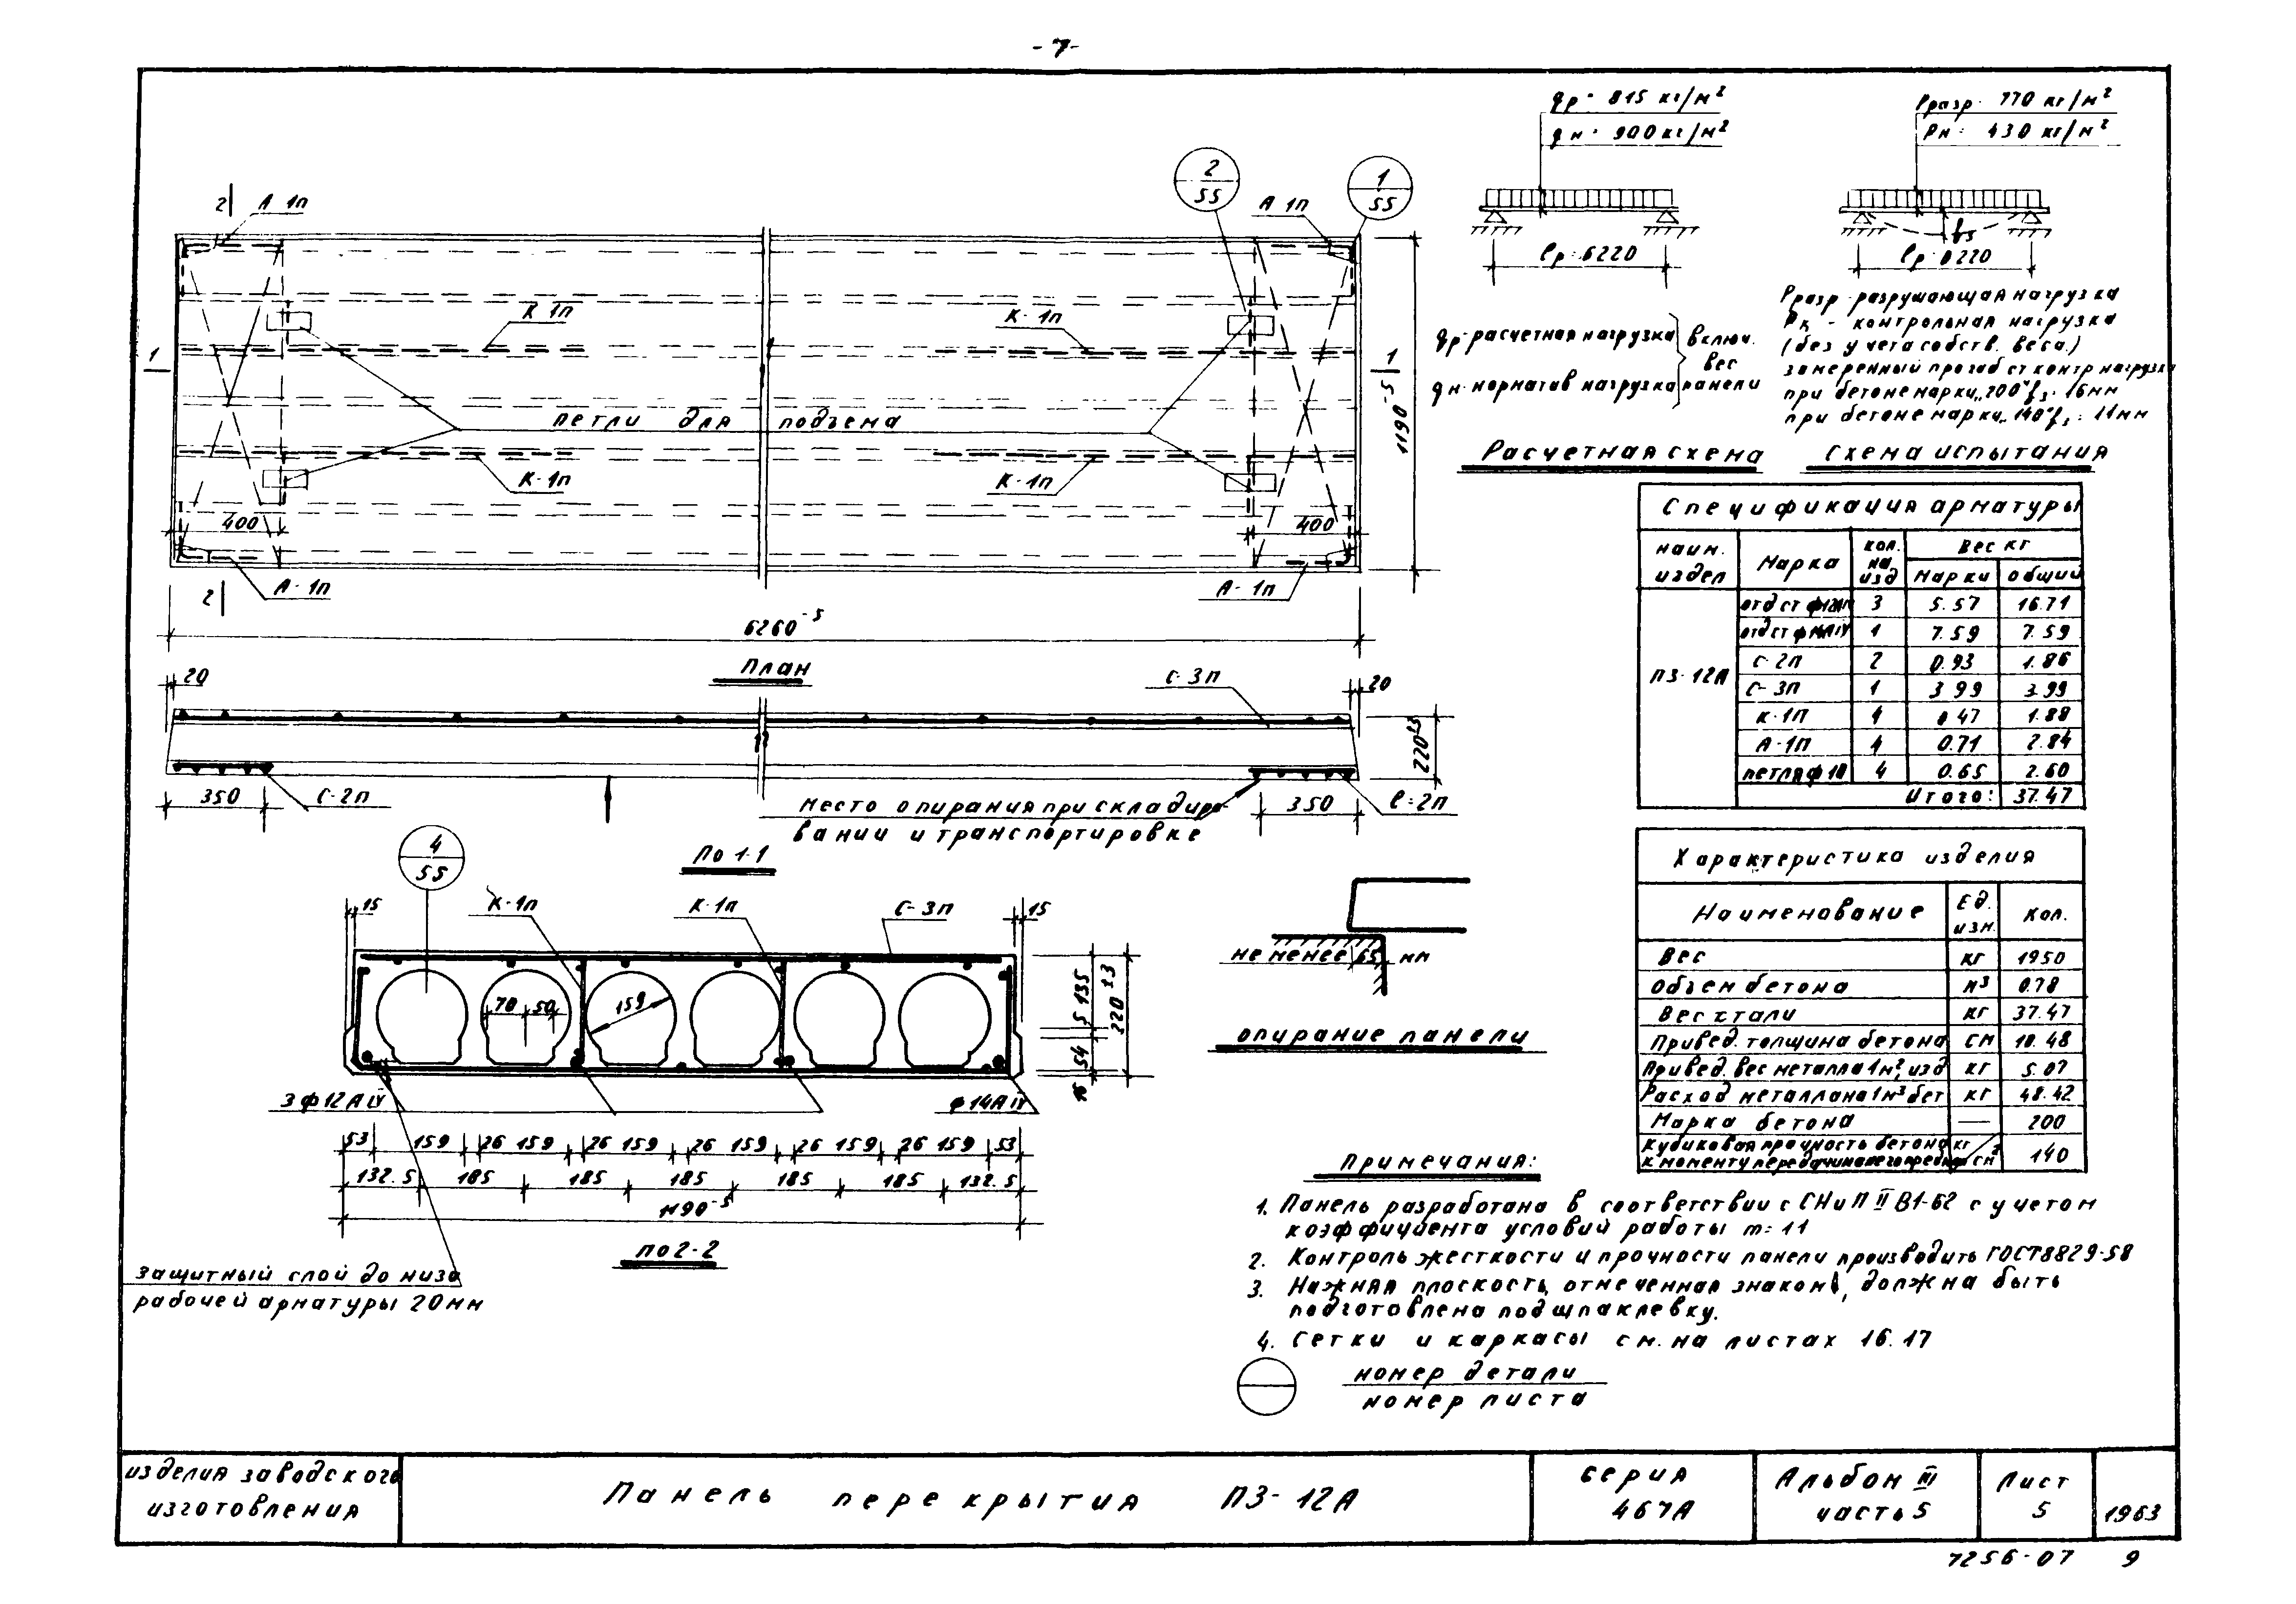 - 7 -
2
А 1п
2
55
1
55
А 1п
К 1п
К- 1п
1
1
петли для подъема
К- 1п
К- 1п
400
400
А- 1п
А- 1п
2
1190⁻⁵
6260⁻⁵
План
20
С- 3п
20
220±3
350
С- 2п
350
С- 2п
место опирания при складиро-
вании и транспортировке
По 1-1
4
55
15
К- 1п
К- 1п
С- 3п
15
70
50
159
135
5
54
220±3
3ф12АIV
ф14АIV
53 159 26 159 26 159 26 159 26 159 26 159 53
132.5 185 185 185 185 185 132.5
1190⁻⁵
по 2-2
защитный слой до низа
рабочей арматуры 20мм
не менее 65 мм
опирание панели
qн = 900 кг/м²
Рразр. 770 кг/м²
Рн = 430 кг/м²
f₃
ℓр = 6220
ℓр = 6220
qр- расчетная нагрузка
qн- норматив нагрузка
включ.
вес
панели
Рразр- разрушающая нагрузка
Рк - контрольная нагрузка
(без учета собств. веса.)
замеренный прогиб от контр нагрузки
при бетоне марки „200“ f₃ = 16мм
при бетоне марки „140“ f₃ = 11мм
Расчетная схема
схема испытания
Спецификация арматуры
наим. издел
Марка
кол. на изд
Вес кг
марки
общий
П3- 12А
отд ст ф12АIV 3 5.57 16.71
отд ст ф14АIV 1 7.59 7.59
С- 2п 2 0.93 1.86
С- 3п 1 3.99 3.99
К-1п 4 0.47 1.88
А-1п 4 0.71 2.84
петля ф 10 4 0.65 2.60
Итого: 37.47
Характеристика изделия
Наименование
Ед. изм.
кол.
Вес кг 1950
Объем бетона м³ 0.78
Вес стали кг 37.47
Привед. толщина бетона см 10.48
Привед. вес металла 1м², изд кг 5.07
Расход металла на 1м³ бет кг 48.42
Марка бетона — 200
Кубиковая прочность бетона
к моменту передачи
кг/см² 140
Примечания:
1. Панель разработана в соответствии с СНиП II В1-62 с учетом
коэффициента условий работы m = 1.1
2. Контроль жесткости и прочности панели производить ГОСТ8829-58
3. Нижняя плоскость, отмеченная знаком , должна быть
подготовлена под шпаклевку.
4. Сетки и каркасы см. на листах 16.17
номер детали
номер листа
изделия заводского
изготовления
Панель перекрытия П3- 12А
серия
467А
Альбом III
часть 5
Лист
5
1963
7256-07 9